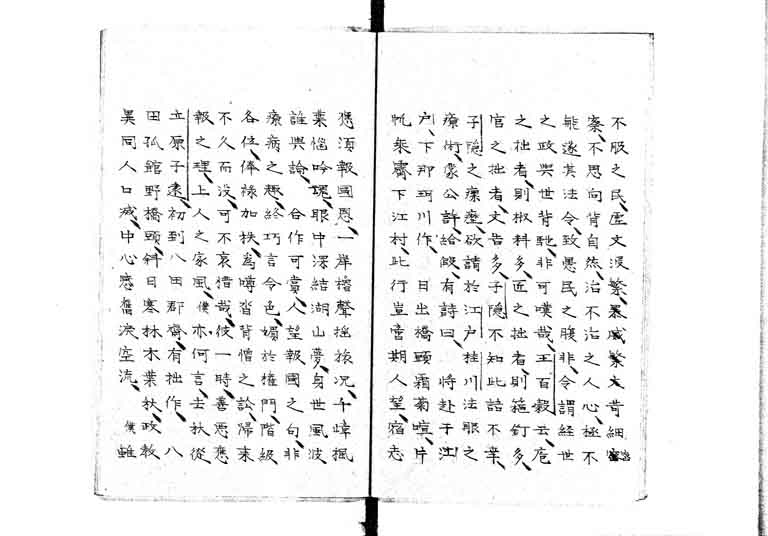 不服之民虛文浸繁暴威繁大昔細密
案不思向背自然治不治之人心極不
能遂其法令致愚民之腹非令謂経世
之政與世背馳非可嘆哉王百穀云庖
之拙者則椒料多匠之拙者則箍釘多
官之拙者文告多子隱不知此語不幸
子隱之瘰癧欲請於江戸桂川法眼之
療術蒙公許給假有詩曰 將赴于江
戸下那珂川作 日出橋頭霜菊喧片
帆乘霽下江村此行豈啻期人望宿志
應須報國恩一岸櫓聲搖旅況千嶂楓
葉惱吟魂眼中深結湖山夢身世風波
誰與論 合作可賞人望報國之句非
療病之趣終巧言令色媚於権門階級
各位俸祿加秩為噂沓背憎之訟歸来
不久而没可不哀惜哉彼一時善悪應
報之理上人之家風僕亦何言去秋從
立原子遠初到八田郡齋有拙作 八
田孤館野橋頭斜日寒林木葉秋政教
異同人口減中心感舊淚空流 僕雖